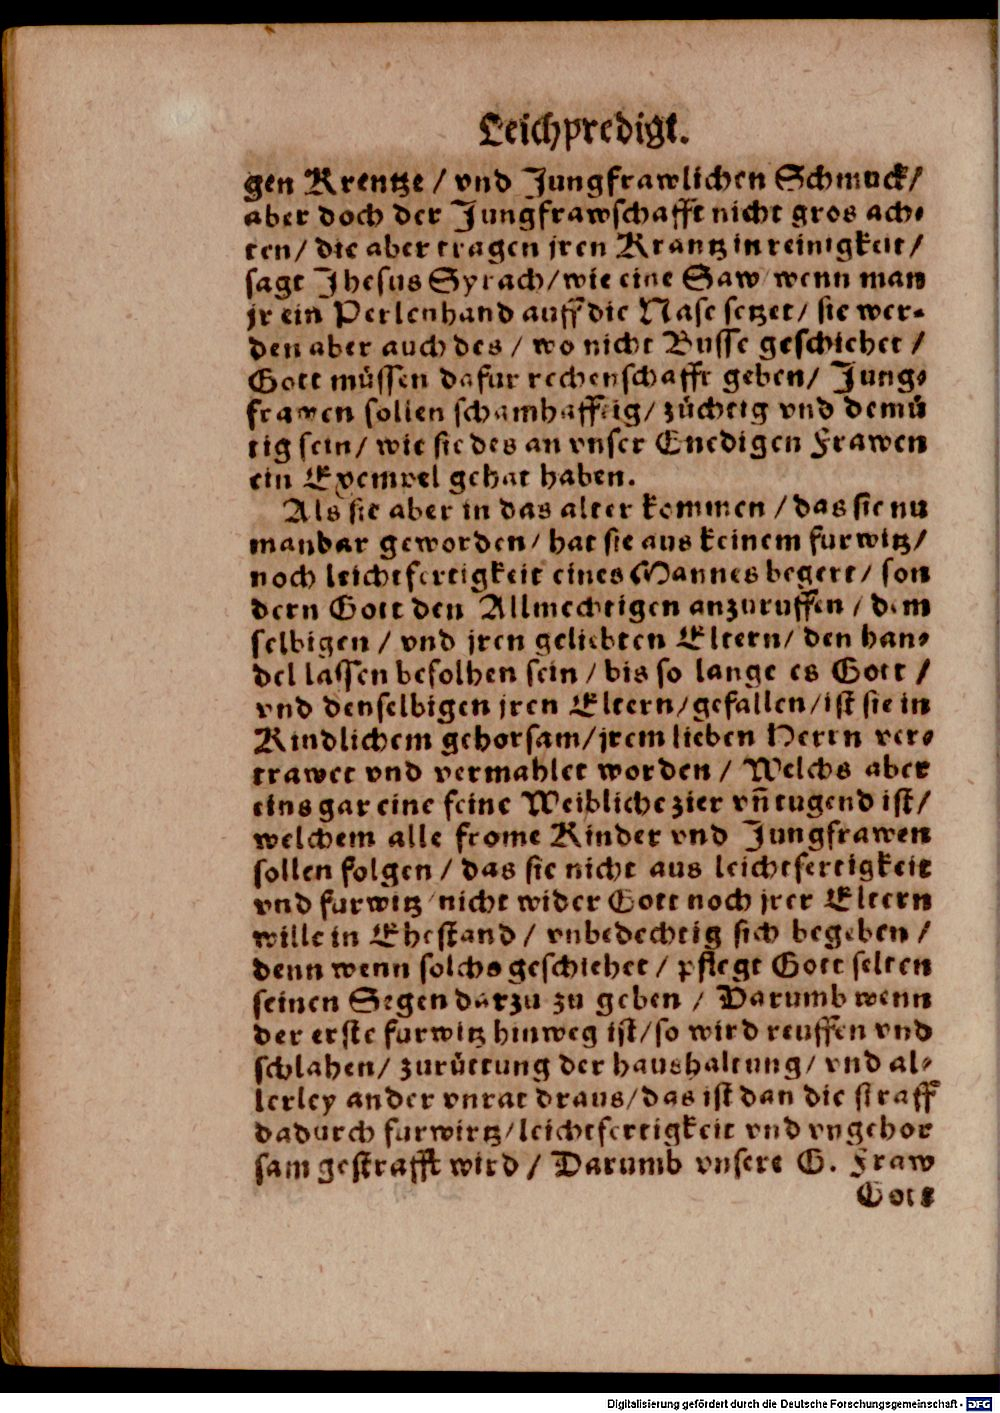 Leichpredigt.
gen Krentze / vnd Jungfrawlichen Schmuck/
aber doch der Jungfrawschafft nicht gros ach-
ten/ die aber tragen jren Krantz in reinigkeit/
sagt Jhesus Syrach/ wie eine Saw wenn man
jr ein Perlenband auff die Nase setzet/ sie wer-
den aber auch des / wo nicht Busse geschiehet /
Gott müssen dafur rechenschafft geben/ Jung-
frawen sollen schamhafftig/ züchtig vnd demü
tig sein/ wie sie des an vnser Gnedigen Frawen
ein Exempel gehat haben.
Als sie aber in das alter kommen / das sie nu
manbar geworden/ hat sie aus keinem furwitz/
noch leichtfertigkeit eines Mannes begert/ son
dern Gott den Allmechtigen anzuruffen / dem
selbigen / vnd jren geliebten Eltern/ den han-
del lassen befolhen sein / bis so lange es Gott /
vnd denselbigen jren Eltern/ gefallen/ ist sie in
Kindlichem gehorsam/ jrem lieben Herrn ver-
trawet vnd vermahlet worden / Welchs aber
eins gar eine feine Weibliche zier vñ tugend ist/
welchem alle frome Kinder vnd Jungfrawen
sollen folgen / das sie nicht aus leichtfertigkeit
vnd furwitz nicht wider Gott noch jrer Eltern
wille in Ehestand / vnbedechtig sich begeben /
denn wenn solchs geschiehet / pflegt Gott selten
seinen Segen darzu zu geben / Darumb wenn
der erste furwitz hinweg ist/ so wird reuffen vnd
schlahen/ zurüttung der haushaltung/ vnd al-
lerley ander vnrat draus/ das ist dan die straff
dadurch furwirtz/ leichtfertigkeit vnd vngehor
sam gestrafft wird / Darumb vnsere G. Fraw
Gott
Digitalisierung gefördert durch die Deutsche Forschungsgemeinschaft - DFG